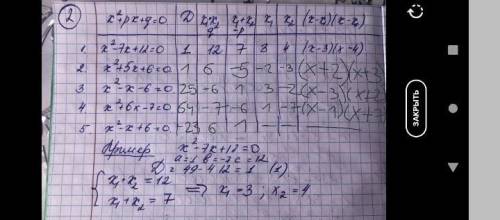 ② x²+px+q=0 | D | x₁x₂ q | x₁+x₂ -p | x₁ | x₂ | (x-x₁)(x-x₂)
1. x²-7x+12=0 | 1 | 12 | 7 | 3 | 4 | (x-3)(x-4)
2. x²+5x+6=0 | 1 | 6 | -5 | -2 | -3 | (x+2)(x+3
3 x²-x-6=0 | 25 | -6 | 1 | 3 | -2 | (x-3)(x+2
4 x²+6x-7=0 | 64 | -7 | -6 | 1 | -7 | (x-1)(x+
5. x²-x+6=0 | -23 | 6 | 1 | - | -
Пример x²-7x+12=0
a=1 b=-7 c=12
D = 49-4·12=1 (1)
{ x₁·x₂=12
x₁+x₂=7 ⟹ x₁=3; x₂=4
ЗАКРЫТЬ